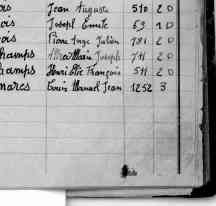 ois Jean Auguste 510 2 0
ois Joseph Emile 63 1 0
ois Pierre Ange Julien 781 2 0
champs Marie Joseph 711 2 0
champs Henri François 511 2 0
marcs Louis Manuel Jean 1252 3